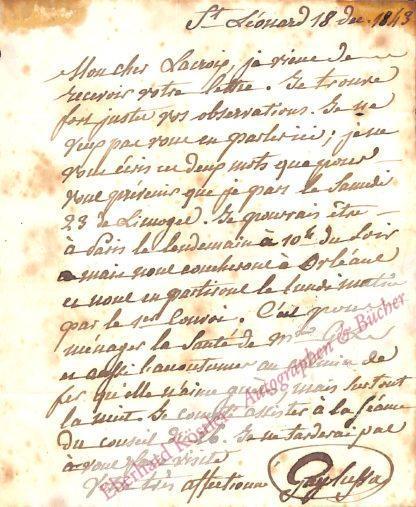 St Léonard 18 déc. 1843
Mon cher Lacroix, je viens de
recevoir votre lettre. Je trouve
fort justes vos observations. Je ne
veux pas vous en parler ici; je ne
vous écris ces deux mots que pour
vous prévenir que je pars le Samedi
23 de Limoges. Je pourrais être
à Paris le lendemain à 10h du Soir
mais nous coucherons à Orléans
et nous en partirons le lundi matin
par le 1er Convoi. C'est pour
ménager la Santé de Mme
et aussi l'accoutumer au chemin de
fer qu'elle n'aime guère, mais surtout
la nuit. Je compte assister à la Séance
du conseil du 26. Je ne tarderai pas
à vous visite
très affectionné GayLussac
Eberhard Köstler Autographen & Bücher